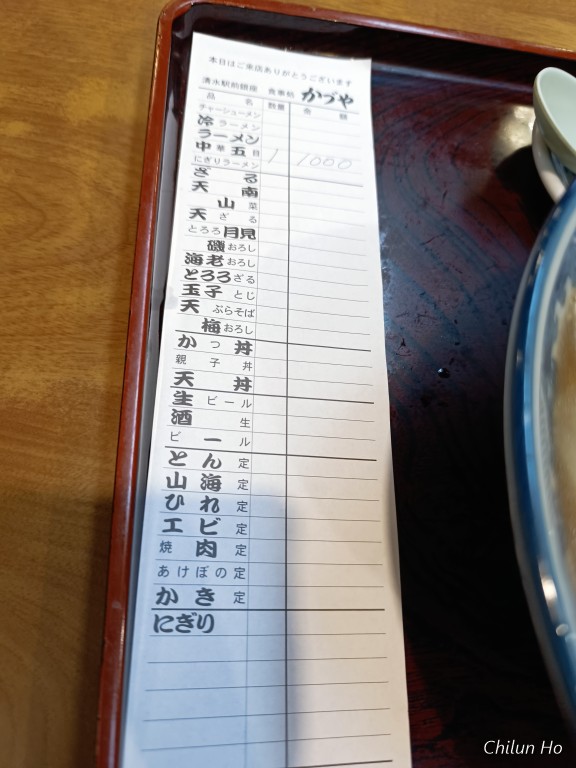 本日はご来店ありがとうございます
清水駅前銀座 食事処 かづや
品 名 数量 金 額
チャーシューメン
冷ラーメン
ラーメン
中華五目 1 1000
にぎりラーメン
ざる
天南
山菜
天ざる
とろろ月見
磯おろし
海老おろし
とろろざる
玉子とじ
天ぷらそば
梅おろし
かつ丼
親子丼
天丼
生ビール
酒 生
ビール
とん定
山海定
ひれ定
エビ定
焼肉定
あけぼの定
かき定
にぎり
Chilun Ho